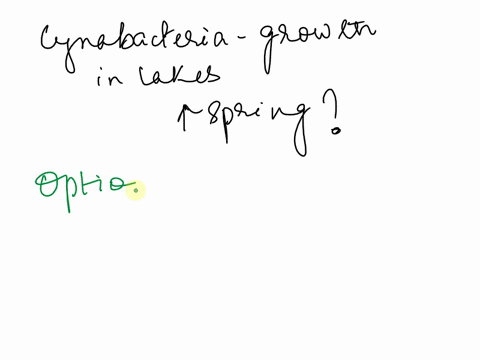 Cynobacteria - growth
in lakes
↑ spring?
Optio